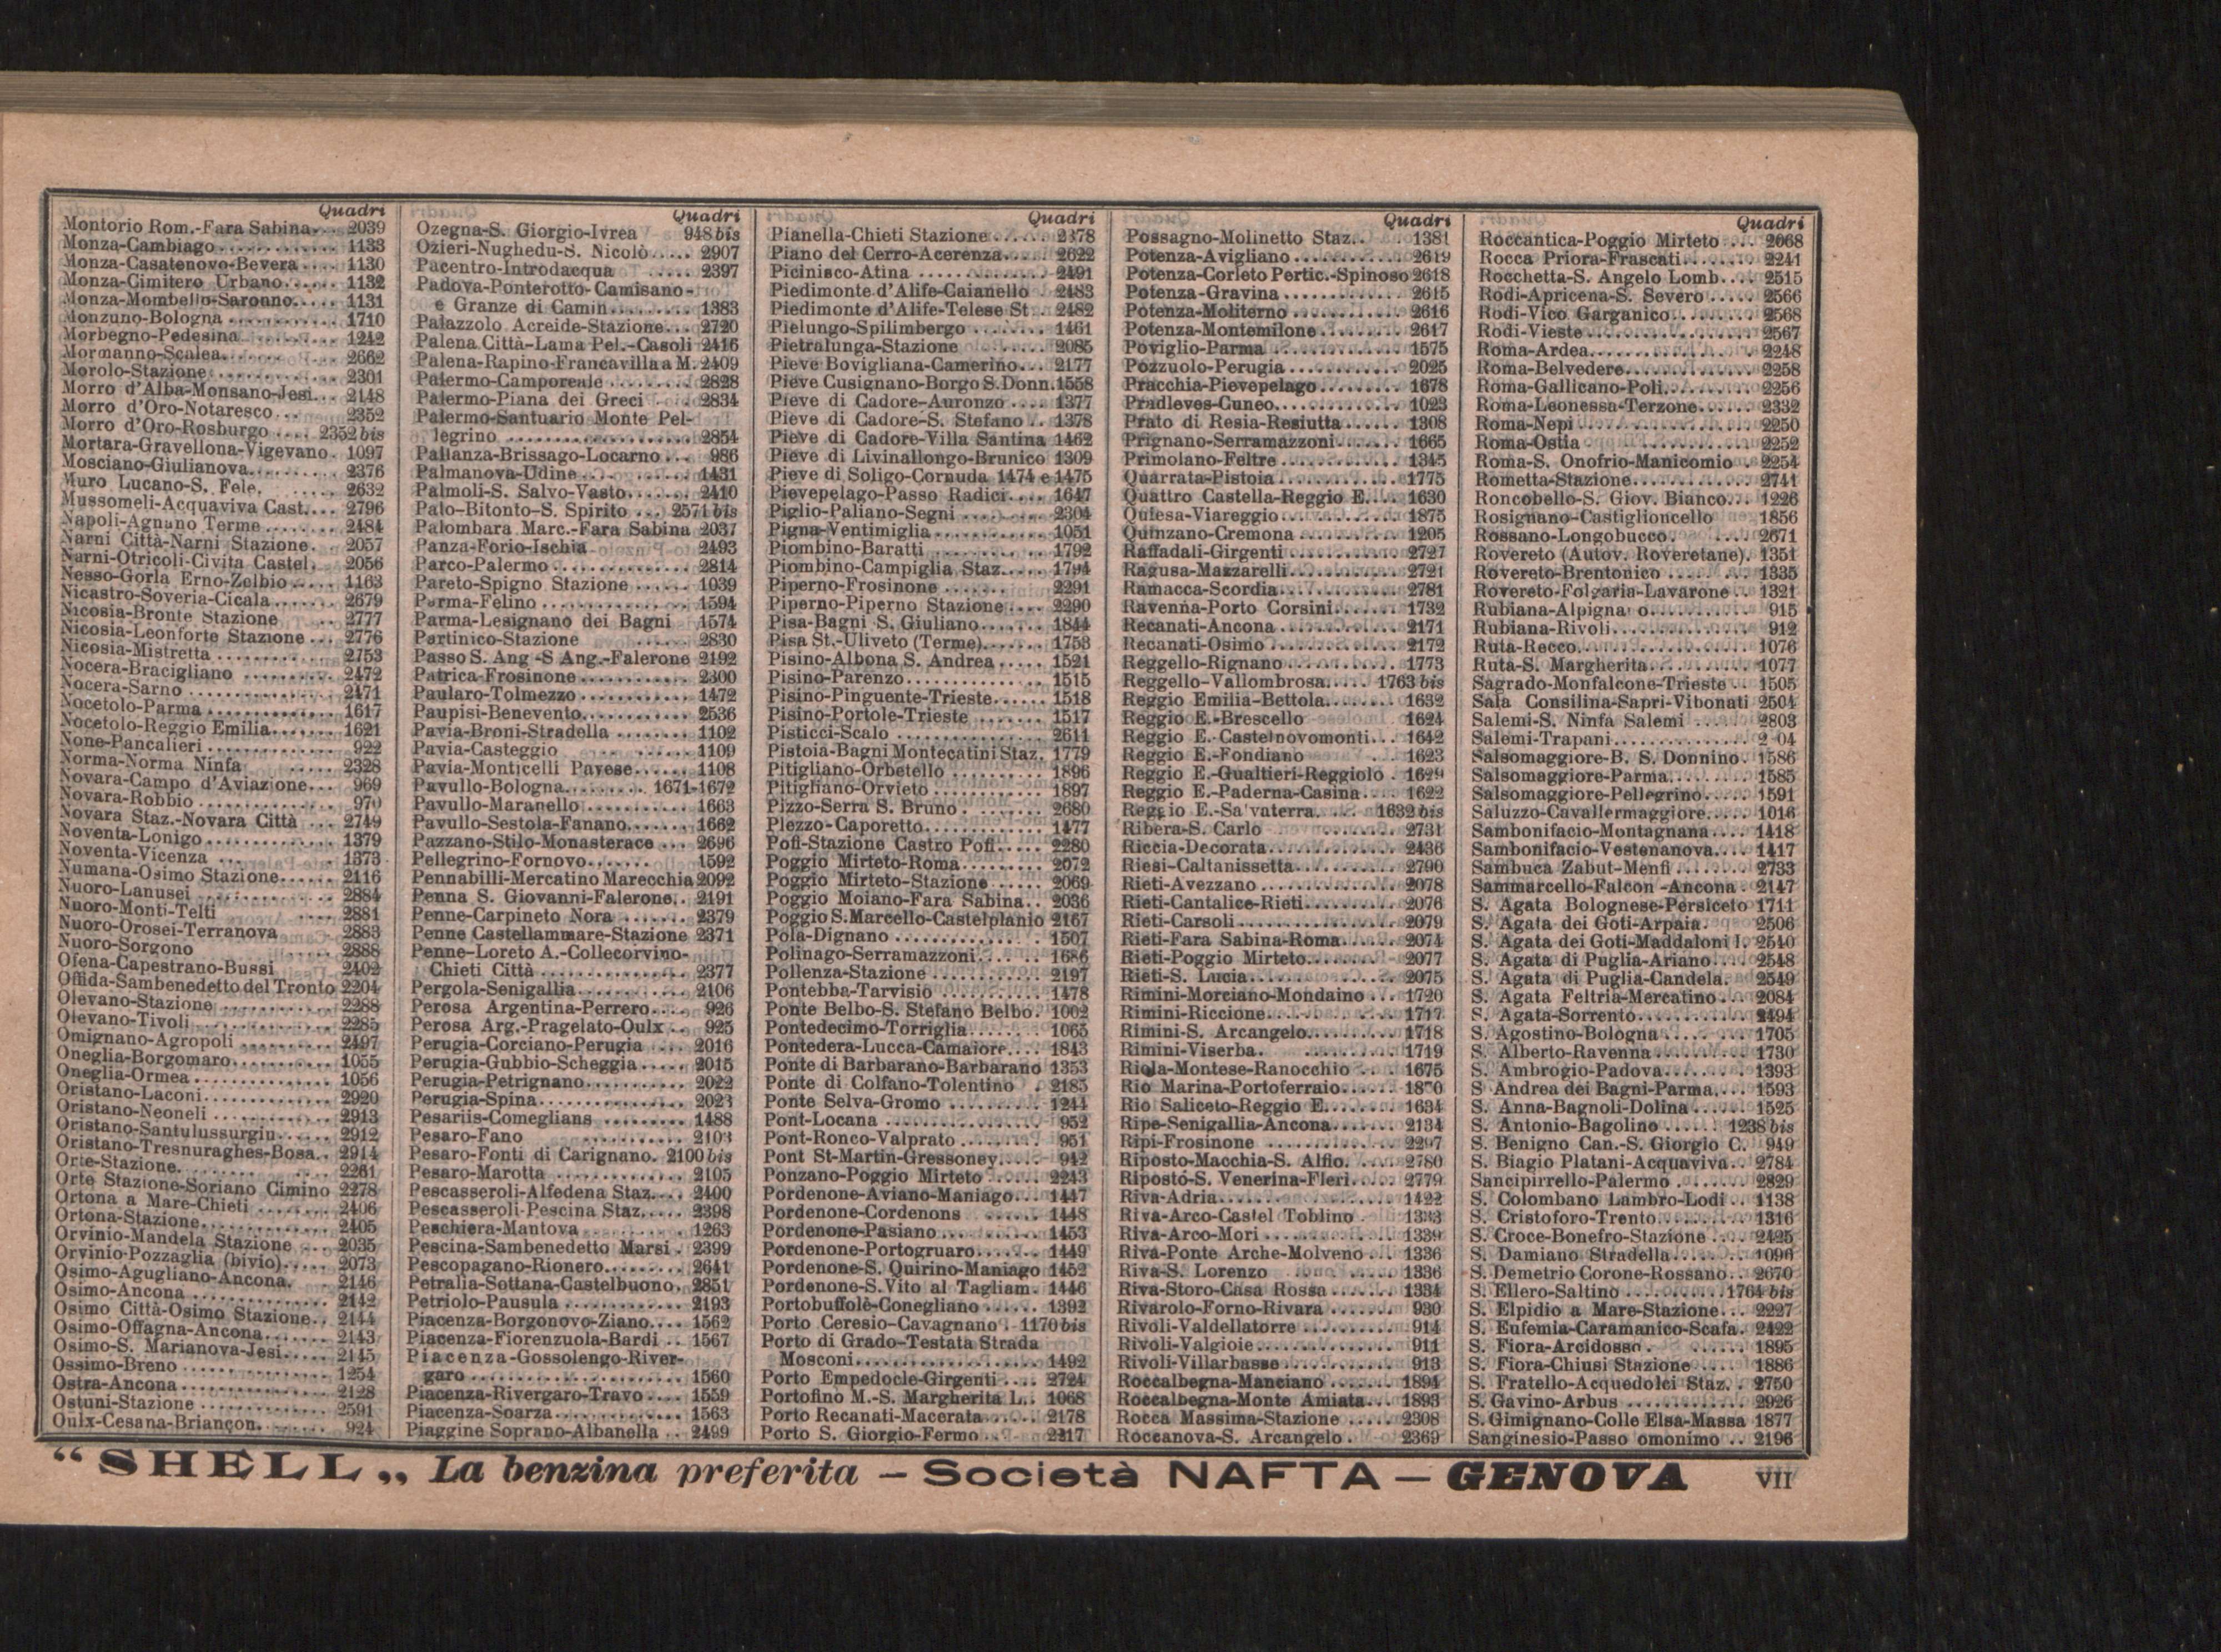 Quadri
Montorio Rom.-Fara Sabina... 2039
Monza-Cambiago............ 1133
Monza-Casatenovo-Bevera.... 1130
Monza-Cimitero Urbano...... 1132
Monza-Mombello-Saronno..... 1131
Monzuno-Bologna............ 1710
Morbegno-Pedesina 1242
Mormanno-Scalea............ 2662
Morolo-Stazione............ 2301
Morro d'Alba-Monsano-Jesi... 2148
Morro d'Oro-Notaresco... 2352
Morro d'Oro-Rosburgo.... 2352 bis
Mortara-Gravellona-Vigevano. 1097
Mosciano-Giulianova......... 2376
Muro Lucano-S. Fele. ..... 2632
Mussomeli-Acquaviva Cast.... 2796
Napoli-Agnano Terme........ 2484
Narni Città-Narni Stazione. 2057
Narni-Otricoli-Civita Castel. 2056
Nesso-Gorla Erno-Zelbio..... 1163
Nicastro-Soveria-Cicala....... 2679
Nicosia-Bronte Stazione .. 2777
Nicosia-Leonforte Stazione... 2776
Nicosia-Mistretta............ 2753
Nocera-Bracigliano .......... 2472
Nocera-Sarno .............. 2471
Nocetolo-Parma............. 1617
Nocetolo-Reggio Emilia...... 1621
None-Pancalieri............. 922
Norma-Norma Ninfa ..... 2328
Novara-Campo d'Aviazione... 969
Novara-Robbio.............. 970
Novara Staz.-Novara Città ... 2749
Noventa-Lonigo............. 1379
Noventa-Vicenza ... 1373
Numana-Osimo Stazione...... 2116
Nuoro-Lanusei ............. 2884
Nuoro-Monti-Telti .... 2881
Nuoro-Orosei-Terranova 2883
Nuoro-Sorgono ..... 2888
Ofena-Capestrano-Bussi 2402
Offida-Sambenedetto del Tronto 2204
Olevano-Stazione ........... 2288
Olevano-Tivoli.............. 2285
Omignano-Agropoli .......... 2497
Oneglia-Borgomaro.......... 1055
Oneglia-Ormea.............. 1056
Oristano-Laconi............. 2920
Oristano-Neoneli ............ 2913
Oristano-Santulussurgiu...... 2912
Oristano-Tresnuraghes-Bosa.. 2914
Orte-Stazione............ 2261
Orte Stazione-Soriano Cimino 2278
Ortona a Mare-Chieti ........ 2406
Ortona-Stazione............. 2405
Orvinio-Mandela Stazione ... 2035
Orvinio-Pozzaglia (bivio)..... 2073
Osimo-Agugliano-Ancona. . 2146
Osimo-Ancona .............. 2142
Osimo Città-Osimo Stazione.. 2144
Osimo-Offagna-Ancona....... 2143
Osimo-S. Marianova-Jesi..... 2145
Ossimo-Breno ............. 1254
Ostra-Ancona.............. 2128
Ostuni-Stazione ............. 2591
Oulx-Cesana-Briançon....... 924
Quadri
Ozegna-S. Giorgio-Ivrea 948 bis
Ozieri-Nughedu-S. Nicolò..... 2907
Pacentro-Introdacqua ..... 2397
Padova-Ponterotto-Camisano-
e Granze di Camin......... 1383
Palazzolo Acreide-Stazione... 2720
Palena Città-Lama Pel.-Casoli 2416
Palena-Rapino-Francavilla a M. 2409
Palermo-Camporeale ........ 2828
Palermo-Piana dei Greci ... 2834
Palermo-Santuario Monte Pel-
legrino .................. 2854
Pallanza-Brissago-Locarno... 986
Palmanova-Udine........... 1431
Palmoli-S. Salvo-Vasto....... 2410
Palo-Bitonto-S. Spirito ... 2571 bis
Palombara Marc.-Fara Sabina 2037
Panza-Forio-Ischia 2493
Parco-Palermo.............. 2814
Pareto-Spigno Stazione ...... 1039
Parma-Felino .............. 1594
Parma-Lesignano dei Bagni 1574
Partinico-Stazione ...... 2830
Passo S. Ang.-S Ang.-Falerone 2192
Patrica-Frosinone........... 2300
Paularo-Tolmezzo........... 1472
Paupisi-Benevento........... 2536
Pavia-Broni-Stradella ........ 1102
Pavia-Casteggio ...... 1109
Pavia-Monticelli Pavese...... 1108
Pavullo-Bologna......... 1671-1672
Pavullo-Maranello........... 1663
Pavullo-Sestola-Fanano....... 1662
Pazzano-Stilo-Monasterace ... 2696
Pellegrino-Fornovo....... 1592
Pennabilli-Mercatino Marecchia 2092
Penna S. Giovanni-Falerone.. 2191
Penne-Carpineto Nora ....... 2379
Penne Castellammare-Stazione 2371
Penne-Loreto A.-Collecorvino-
Chieti Città ............... 2377
Pergola-Senigallia........... 2106
Perosa Argentina-Perrero.... 926
Perosa Arg.-Pragelato-Oulx .. 925
Perugia-Corciano-Perugia .... 2016
Perugia-Gubbio-Scheggia..... 2015
Perugia-Petrignano.......... 2022
Perugia-Spina............... 2023
Pesariis-Comeglians ......... 1488
Pesaro-Fano ........... 2103
Pesaro-Fonti di Carignano. 2100 bis
Pesaro-Marotta ............. 2105
Pescasseroli-Alfedena Staz.... 2400
Pescasseroli-Pescina Staz..... 2398
Peschiera-Mantova .......... 1263
Pescina-Sambenedetto Marsi. 2399
Pescopagano-Rionero........ 2641
Petralia-Sottana-Castelbuono. 2851
Petriolo-Pausula ............ 2193
Piacenza-Borgonovo-Ziano.... 1562
Piacenza-Fiorenzuola-Bardi .. 1567
Piacenza-Gossolengo-River-
garo ..................... 1560
Piacenza-Rivergaro-Travo .... 1559
Piacenza-Soarza............. 1563
Piaggine Soprano-Albanella .. 2499
Quadri
Pianella-Chieti Stazione...... 2378
Piano del Cerro-Acerenza..... 2622
Picinisco-Atina .............. 2491
Piedimonte d'Alife-Caianello 2483
Piedimonte d'Alife-Telese St.. 2482
Pielungo-Spilimbergo ........ 1461
Pietralunga-Stazione ....... 2085
Pieve Bovigliana-Camerino... 2177
Pieve Cusignano-Borgo S. Donn. 1558
Pieve di Cadore-Auronzo .... 1377
Pieve di Cadore-S. Stefano .. 1378
Pieve di Cadore-Villa Santina 1462
Pieve di Livinallongo-Brunico 1309
Pieve di Soligo-Cornuda 1474 e 1475
Pievepelago-Passo Radici.... 1647
Piglio-Paliano-Segni ......... 2304
Pigna-Ventimiglia........... 1051
Piombino-Baratti ........... 1792
Piombino-Campiglia Staz..... 1794
Piperno-Frosinone ....... 2291
Piperno-Piperno Stazione.... 2290
Pisa-Bagni S. Giuliano....... 1844
Pisa St.-Uliveto (Terme)...... 1753
Pisino-Albona S. Andrea..... 1521
Pisino-Parenzo.............. 1515
Pisino-Pinguente-Trieste..... 1518
Pisino-Portole-Trieste ....... 1517
Pisticci-Scalo ............... 2611
Pistoia-Bagni Montecatini Staz. 1779
Pitigliano-Orbetello ......... 1896
Pitigliano-Orvieto ........... 1897
Pizzo-Serra S. Bruno ........ 2680
Plezzo-Caporetto............ 1477
Pofi-Stazione Castro Pofi..... 2280
Poggio Mirteto-Roma........ 2072
Poggio Mirteto-Stazione ...... 2069
Poggio Moiano-Fara Sabina.. 2036
Poggio S. Marcello-Castelplanio 2167
Pola-Dignano .............. 1507
Polinago-Serramazzoni... .. 1686
Pollenza-Stazione ........... 2197
Pontebba-Tarvisio .......... 1478
Ponte Belbo-S. Stefano Belbo. 1002
Pontedecimo-Torriglia....... 1065
Pontedera-Lucca-Camaiore.... 1843
Ponte di Barbarano-Barbarano 1353
Ponte di Colfano-Tolentino . 2185
Ponte Selva-Gromo ......... 1244
Pont-Locana ............... 952
Pont-Ronco-Valprato ........ 951
Pont St-Martin-Gressoney..... 942
Ponzano-Poggio Mirteto ..... 2243
Pordenone-Aviano-Maniago... 1447
Pordenone-Cordenons ...... 1448
Pordenone-Pasiano.......... 1453
Pordenone-Portogruaro...... 1449
Pordenone-S. Quirino-Maniago 1452
Pordenone-S. Vito al Tagliam. 1446
Portobuffolè-Conegliano...... 1392
Porto Ceresio-Cavagnano. 1170 bis
Porto di Grado-Testata Strada
Mosconi................... 1492
Porto Empedocle-Girgenti.... 2724
Portofino M.-S. Margherita L.. 1068
Porto Recanati-Macerata...... 2178
Porto S. Giorgio-Fermo ... 2217
Quadri
Possagno-Molinetto Staz.. . 1381
Potenza-Avigliano........... 2619
Potenza-Corleto Pertic.-Spinoso 2618
Potenza-Gravina............ 2615
Potenza-Moliterno........... 2616
Potenza-Montemilone........ 2617
Poviglio-Parma ............. 1575
Pozzuolo-Perugia............ 2025
Pracchia-Pievepelago........ 1678
Pradleves-Cuneo............. 1023
Prato di Resia-Resiutta...... 1308
Prignano-Serramazzoni....... 1665
Primolano-Feltre............ 1345
Quarrata-Pistoia............ 1775
Quattro Castella-Reggio E.... 1630
Quiesa-Viareggio............ 1875
Quinzano-Cremona .......... 1205
Raffadali-Girgenti........... 2727
Ragusa-Mazzarelli........... 2721
Ramacca-Scordia............ 2781
Ravenna-Porto Corsini....... 1732
Recanati-Ancona............ 2171
Recanati-Osimo ............. 2172
Reggello-Rignano ........... 1773
Reggello-Vallombrosa..... 1763 bis
Reggio Emilia-Bettola........ 1632
Reggio E.-Brescello 1624
Reggio E.-Castelnovomonti... 1642
Reggio E.-Fondiano . 1623
Reggio E.-Gualtieri-Reggiolo . 1629
Reggio E.-Paderna-Casina.... 1622
Reggio E.-Sa'vaterra. ... 1632 bis
Ribera-S. Carlo ........ 2731
Riccia-Decorata............. 2436
Riesi-Caltanissetta.......... 2790
Rieti-Avezzano ............. 2078
Rieti-Cantalice-Rieti......... 2076
Rieti-Carsoli................ 2079
Rieti-Fara Sabina-Roma...... 2074
Rieti-Poggio Mirteto......... 2077
Rieti-S. Lucia............... 2075
Rimini-Morciano-Mondaino... 1720
Rimini-Riccione............. 1717
Rimini-S. Arcangelo......... 1718
Rimini-Viserba. ......... 1719
Riola-Montese-Ranocchio .. . 1675
Rio Marina-Portoferraio...... 1870
Rio Saliceto-Reggio E........ 1634
Ripe-Senigallia-Ancona....... 2134
Ripi-Frosinone ............. 2297
Riposto-Macchia-S. Alfio. .... 2780
Ripostó-S. Venerina-Fleri..... 2779
Riva-Adria.............. 1422
Riva-Arco-Castel Toblino . 1333
Riva-Arco-Mori ............. 1339
Riva-Ponte Arche-Molveno... 1336
Riva-S. Lorenzo ... ..... 1336
Riva-Storo-Casa Rossa ....... 1334
Rivarolo-Forno-Rivara ....... 930
Rivoli-Valdellatorre .......... 914
Rivoli-Valgioie............... 911
Rivoli-Villarbasse............ 913
Roccalbegna-Manciano....... 1894
Roccalbegna-Monte Amiata... 1893
Rocca Massima-Stazione ..... 2308
Roccanova-S. Arcangelo. 2369
Quadri
Roccantica-Poggio Mirteto ... 2068
Rocca Priora-Frascati........ 2241
Rocchetta-S. Angelo Lomb.... 2515
Rodi-Apricena-S. Severo ..... 2566
Rodi-Vico Garganico......... 2568
Rodi-Vieste................. 2567
Roma-Ardea................ 2248
Roma-Belvedere............. 2258
Roma-Gallicano-Poli......... 2256
Roma-Leonessa-Terzone...... 2332
Roma-Nepi ................ 2250
Roma-Ostia ............. 2252
Roma-S. Onofrio-Manicomio . 2254
Rometta-Stazione............ 2741
Roncobello-S. Giov. Bianco... 1226
Rosignano-Castiglioncello 1856
Rossano-Longobucco. .... 2671
Rovereto (Autov. Roveretane). 1351
Rovereto-Brentonico ..... ... 1335
Rovereto-Folgaria-Lavarone .. 1321
Rubiana-Alpigna o........... 915
Rubiana-Rivoli............... 912
Ruta-Recco................. 1076
Ruta-S. Margherita.......... 1077
Sagrado-Monfalcone-Trieste .. 1505
Sala Consilina-Sapri-Vibonati 2504
Salemi-S. Ninfa Salemi ..... 2803
Salemi-Trapani.............. 2 04
Salsomaggiore-B. S. Donnino. 1586
Salsomaggiore-Parma........ 1585
Salsomaggiore-Pellegrino..... 1591
Saluzzo-Cavallermaggiore.... 1016
Sambonifacio-Montagnana.... 1418
Sambonifacio-Vestenanova.... 1417
Sambuca Zabut-Menfi ....... 2733
Sammarcello-Falcon -Ancona. 2147
S. Agata Bolognese-Persiceto 1711
S. Agata dei Goti-Arpaia. 2506
S. Agata dei Goti-Maddaloni I. 2540
S. Agata di Puglia-Ariano.... 2548
S. Agata di Puglia-Candela. 2549
S. Agata Feltria-Mercatino... 2084
S. Agata-Sorrento........... 2494
S. Agostino-Bologna ... ... 1705
S. Alberto-Ravenna.......... 1730
S. Ambrogio-Padova......... 1393
S Andrea dei Bagni-Parma.... 1593
S. Anna-Bagnoli-Dolina...... 1525
S. Antonio-Bagolino ..... 1238 bis
S. Benigno Can.-S. Giorgio C. 949
S. Biagio Platani-Acquaviva.. 2784
Sancipirrello-Palermo ....... 2829
S. Colombano Lambro-Lodi .. 1138
S. Cristoforo-Trento......... 1316
S. Croce-Bonefro-Stazione .... 2425
S. Damiano Stradella........ 1096
S. Demetrio Corone-Rossano.. 2670
S. Ellero-Saltino ..........1764 bis
S. Elpidio a Mare-Stazione... 2227
S. Eufemia-Caramanico-Scafa. 2422
S. Fiora-Arcidosso. ...... 1895
S. Fiora-Chiusi Stazione .... 1886
S. Fratello-Acquedolci Staz. . 2750
S. Gavino-Arbus ............ 2926
S. Gimignano-Colle Elsa-Massa 1877
Sanginesio-Passo omonimo .. 2196
“SHELL„ La benzina preferita – Società NAFTA – GENOVA VII